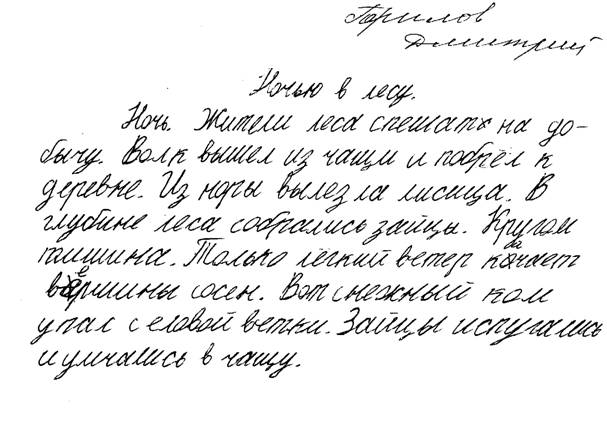 Гарилов
Дмитрий
Ночью в лесу.
Ночь. Жители леса спешатх на до-
бычу. Волк вышел из чащи и побрёл к
деревне. Из норы вылезла лисица. В
глубине леса собрались зайцы. Кругом
тишина. Только лёгкий ветер качает
вершины сосен. Вот снежный ком
упал с еловой ветки. Зайцы испугались
и умчались в чащу.